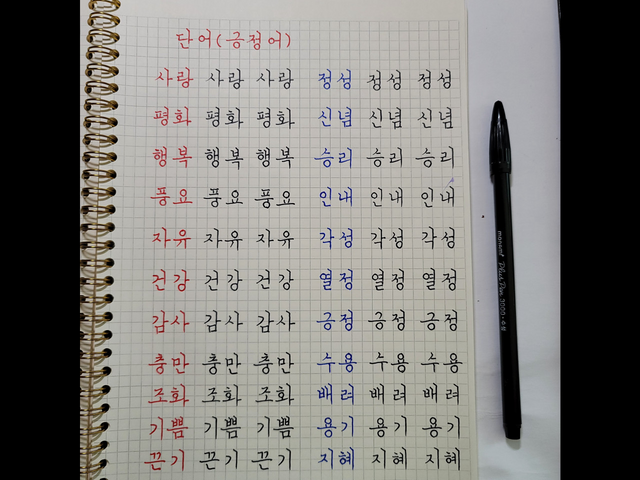 단어(긍정어)
사랑 사랑 사랑 정성 정성 정성
평화 평화 평화 신념 신념 신념
행복 행복 행복 승리 승리 승리
풍요 풍요 풍요 인내 인내 인내
자유 자유 자유 각성 각성 각성
건강 건강 건강 열정 열정 열정
감사 감사 감사 긍정 긍정 긍정
충만 충만 충만 수용 수용 수용
조화 조화 조화 배려 배려 배려
기쁨 기쁨 기쁨 용기 용기 용기
끈기 끈기 끈기 지혜 지혜 지혜
monami Plus Pen 3000